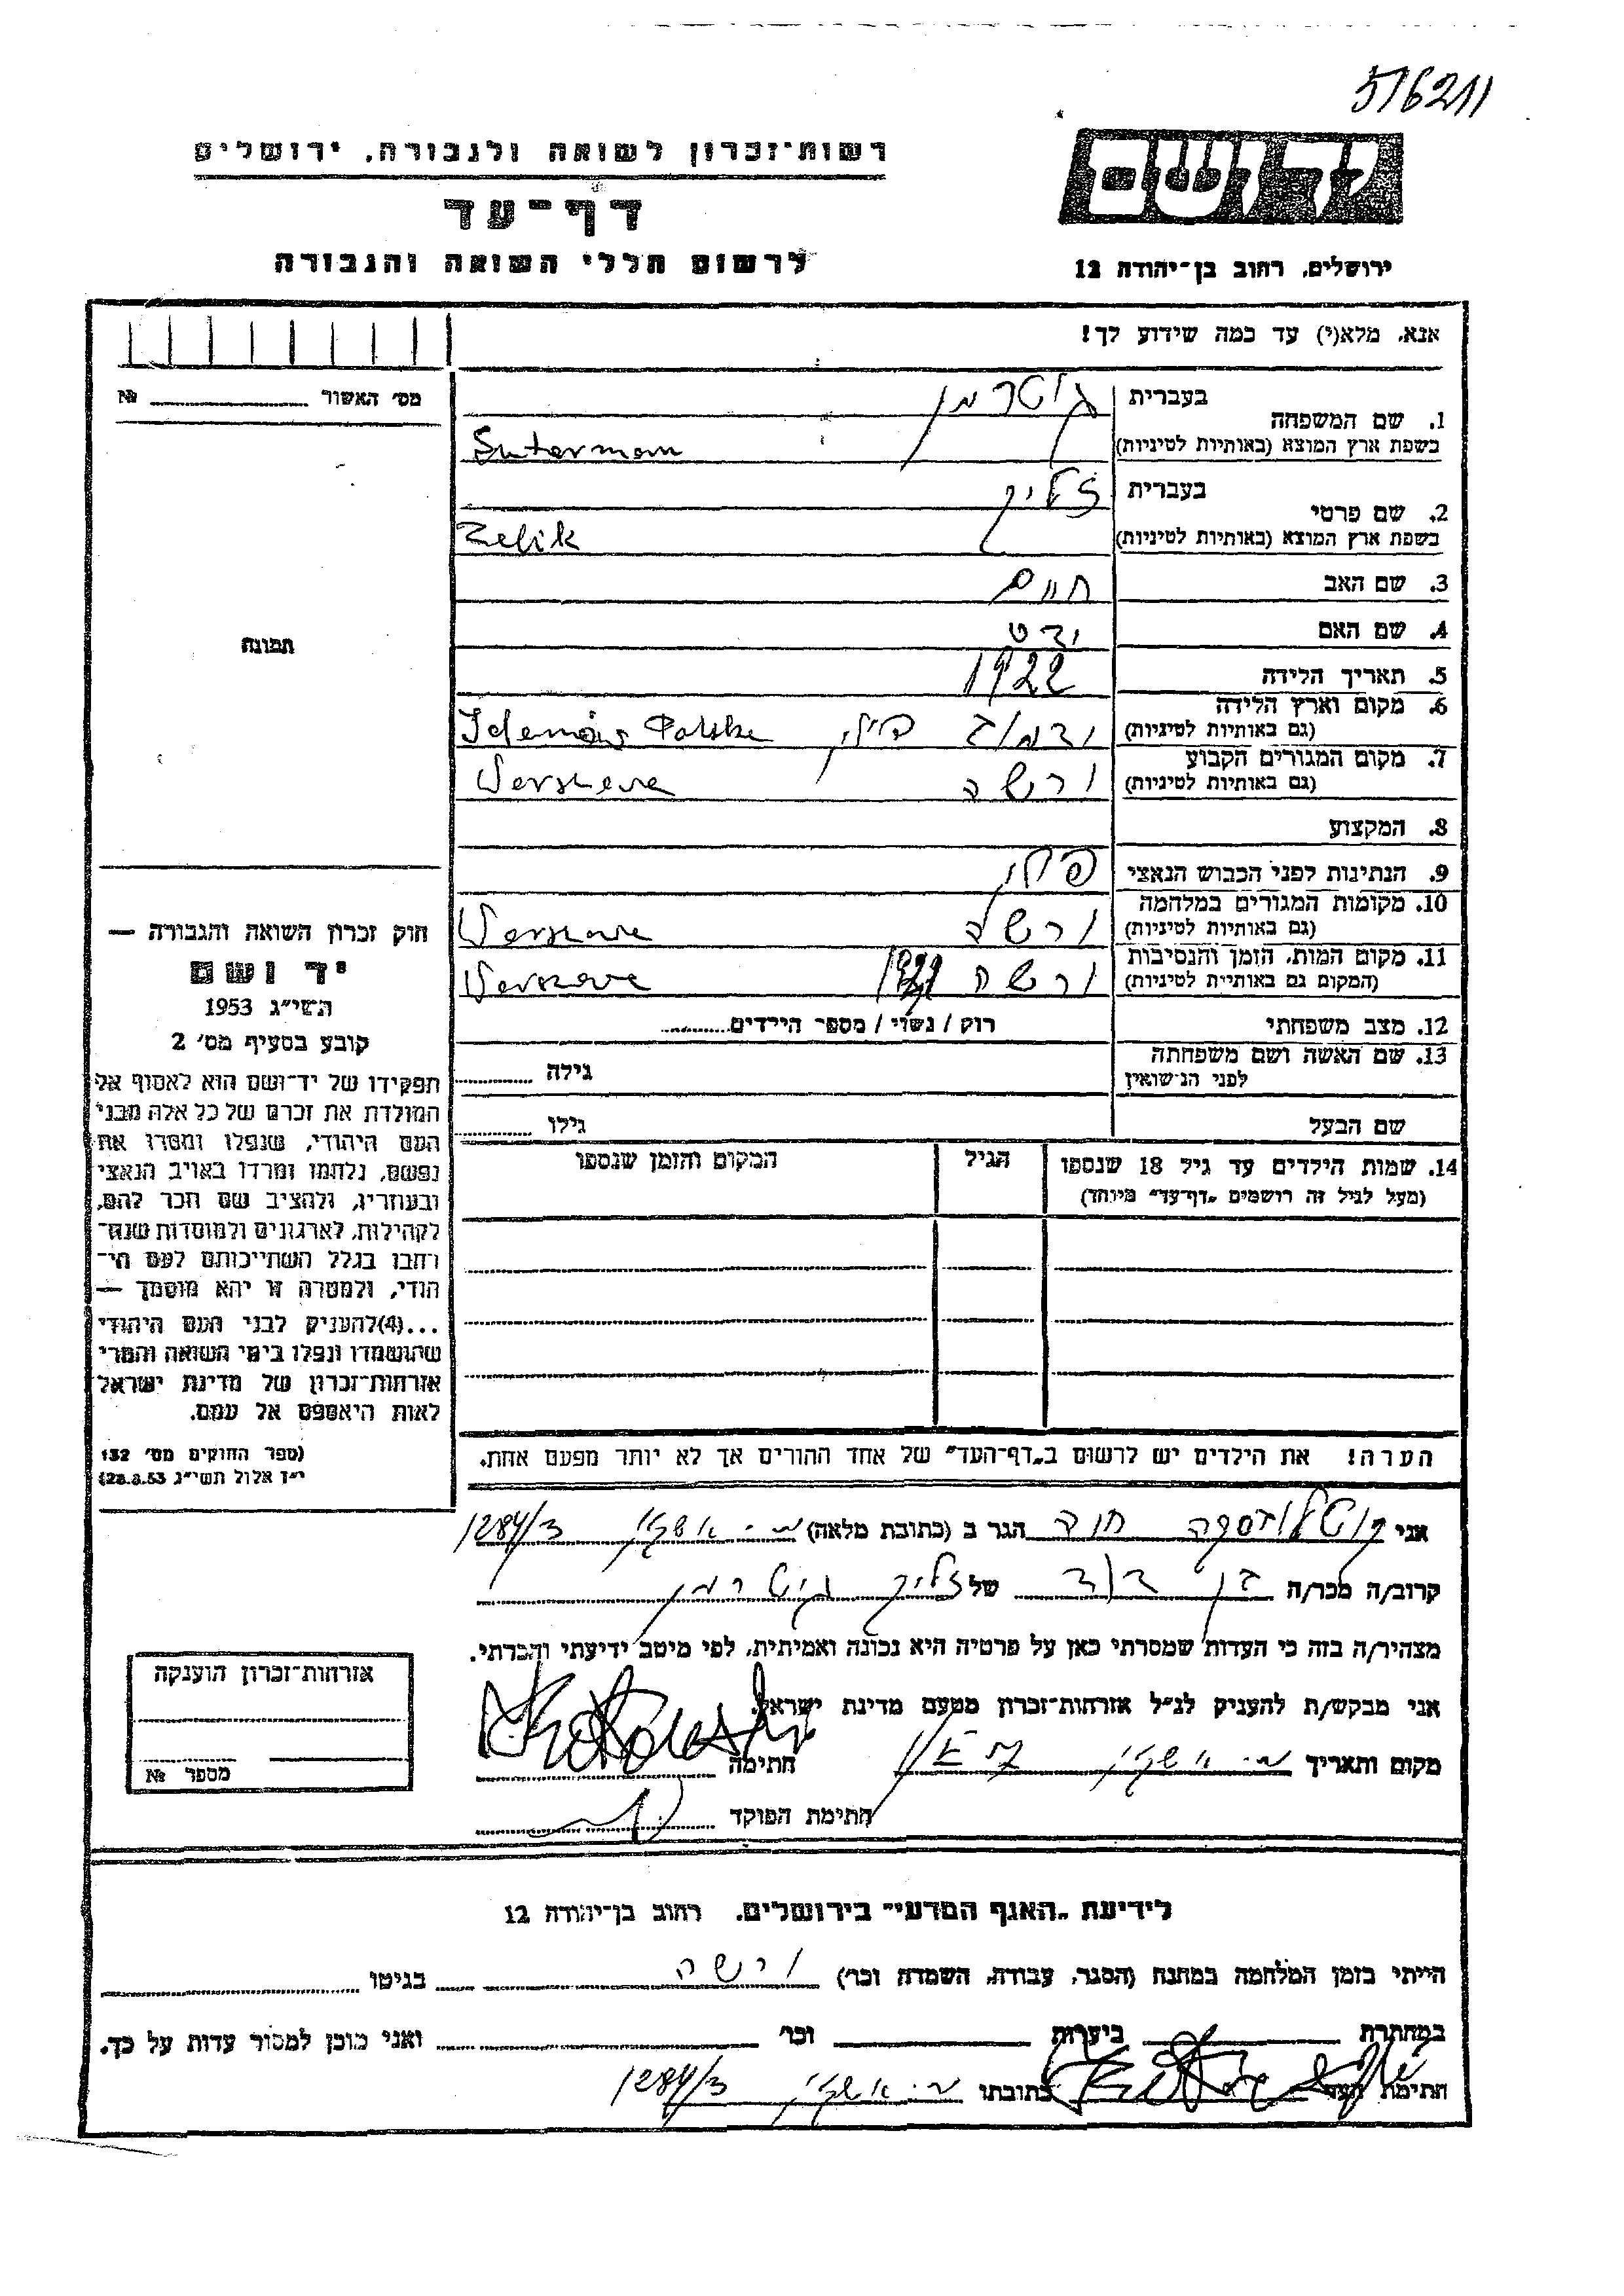 516211
רשות־זכרון לשואה ולגבורה, ירושלים
דף־עד
לרשום חללי השואה והגבורה
יד ושם
ירושלים, רחוב בן־יהודה 12
אנא, מלא(י) עד כמה שידוע לך!
מס׳ האשור № 
1. שם המשפחה בעברית גוטרמן
בשפת ארץ המוצא (באותיות לטיניות) Guterman
2. שם פרטי בעברית זליק
בשפת ארץ המוצא (באותיות לטיניות) Zelik
3. שם האב חיים
4. שם האם
5. תאריך הלידה 1922
6. מקום וארץ הלידה
(גם באותיות לטיניות) פולין Polska
7. מקום המגורים הקבוע
(גם באותיות לטיניות) ורשה Warszawa
8. המקצוע
9. הנתינות לפני הכבוש הנאצי פולין
10. מקומות המגורים במלחמה
(גם באותיות לטיניות) ורשה Warszawa
11. מקום המות, הזמן והנסיבות
(המקום גם באותיות לטיניות) ורשה Warszawa
12. מצב משפחתי רווק / נשוי / מספר הילדים
13. שם האשה ושם משפחתה
לפני הנישואין גילה
שם הבעל גילו
14. שמות הילדים עד גיל 18 שנספו הגיל המקום והזמן שנספו
(מעל לגיל זה רושמים „דף־עד״ מיוחד)
תמונה
חוק זכרון השואה והגבורה —
יד ושם
תשי״ג 1953
קובע בסעיף מס׳ 2
תפקידו של יד־ושם הוא לאסוף אל
המולדת את זכרם של כל אלה מבני
העם היהודי, שנפלו ומסרו את
נפשם, נלחמו ומרדו באויב הנאצי
ובעוזריו, ולהציב שם וזכר להם,
לקהילות, לארגונים ולמוסדות שנח־
רבו בגלל השתייכותם לעם הי־
הודי, ולמטרה זו יהא מוסמך —
...(4)להעניק לבני העם היהודי
שהושמדו ונפלו בימי השואה והמרי
אזרחות־זכרון של מדינת ישראל
לאות היאספם אל עמם.
(ספר החוקים מס׳ 132
י״ז אלול תשי״ג 28.8.53)
הערה! את הילדים יש לרשום ב„דף־העד״ של אחד ההורים אך לא יותר מפעם אחת.
אני חוה הגר ב (כתובת מלאה) 1284/3
קרוב/ה מכר/ה בן דוד של זליק גוטרמן
מצהיר/ה בזה כי העדות שמסרתי כאן על פרטיה היא נכונה ואמיתית, לפי מיטב ידיעתי והכרתי.
אני מבקש/ת להעניק לנ״ל אזרחות־זכרון מטעם מדינת ישראל.
מקום ותאריך חתימה
חתימת הפוקד
אזרחות־זכרון הוענקה
מספר №
לידיעת „האגף המדעי״ בירושלים, רחוב בן־יהודה 12
הייתי בזמן המלחמה במחנה (הסגר, עבודה, השמדה וכר׳) ורשה בגיטו
במחתרת ביערות וכר׳ ואני מוכן למסור עדות על כך.
חתימת העד כתובתו 1284/3